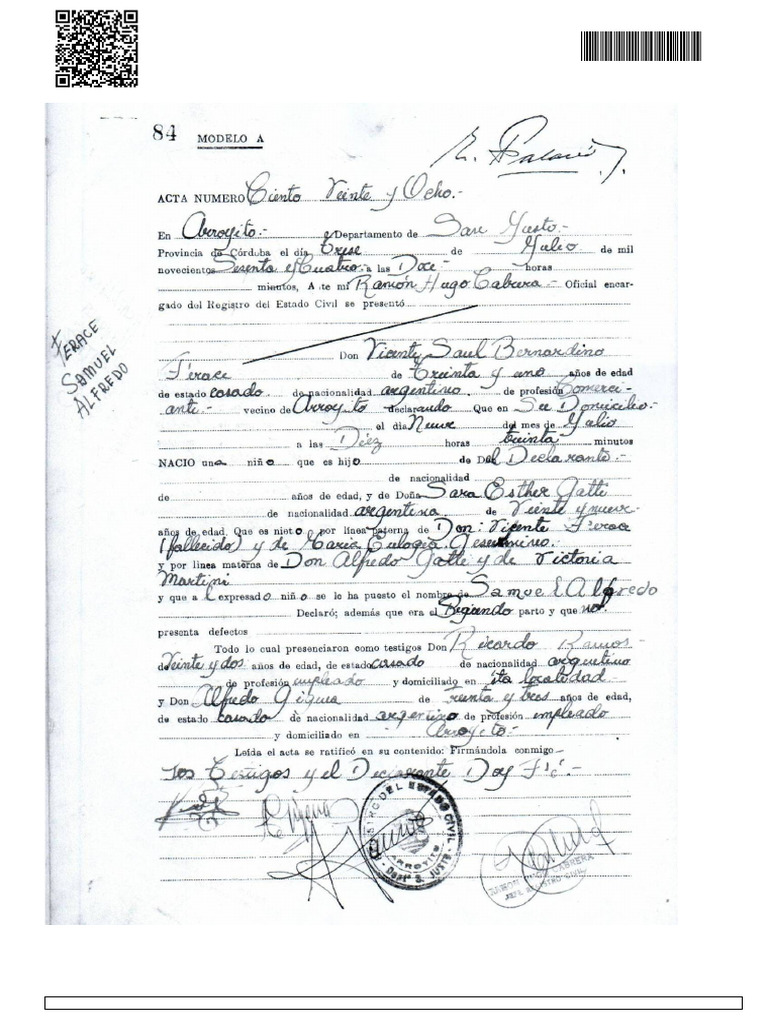 84 MODELO A
ACTA NUMERO Ciento Veinte y Ocho.-
En Arroyito.- Departamento de San Justo.-
Provincia de Córdoba el día trese de Julio de mil
novecientos Sesenta y Cuatro.- a las Doce horas
minutos, Ante mí Ramón Hugo Cabrera.- Oficial encar-
gado del Registro del Estado Civil se presentó
FERACE
SAMUEL
ALFREDO
Don Vicente Saul Bernardino
Ferace de treinta y uno años de edad
de estado casado de nacionalidad argentino. de profesión Comerci-
ante.- vecino de Arroyito declarando Que en Su Domicilio.-
el día Nueve del mes de Julio
a las Diéz horas treinta minutos
NACIO una niño que es hijo de Del Declarante.-
de nacionalidad
de años de edad, y de Doña Sara Esther Gatti
de nacionalidad argentina de Veinte y nueve
años de edad. Que es nieto por línea paterna de Don: Vicente Ferace
(fallecido) y de María Eulogia
y por línea materna de Don Alfredo Gatti y de Victoria
Martini
y que al expresado niño se le ha puesto el nombre de Samuel Alfredo
Declaró; además que era el Segundo parto y que no.
presenta defectos
Todo lo cual presenciaron como testigos Don Ricardo Ramos
de Veinte y dos años de edad, de estado casado de nacionalidad argentino
de profesión empleado y domiciliado en esta localidad
y Don Alfredo de treinta y tres años de edad,
de estado casado de nacionalidad argentino de profesión empleado
y domiciliado en Arroyito.-
Leída el acta se ratificó en su contenido: Firmándola conmigo
Los Testigos y el Declarante Doy Fé.-
REGISTRO DEL ESTADO CIVIL
ARROYITO
Deptº S. JUSTO
RAMON HUGO CABRERA
JEFE REGISTRO CIVIL